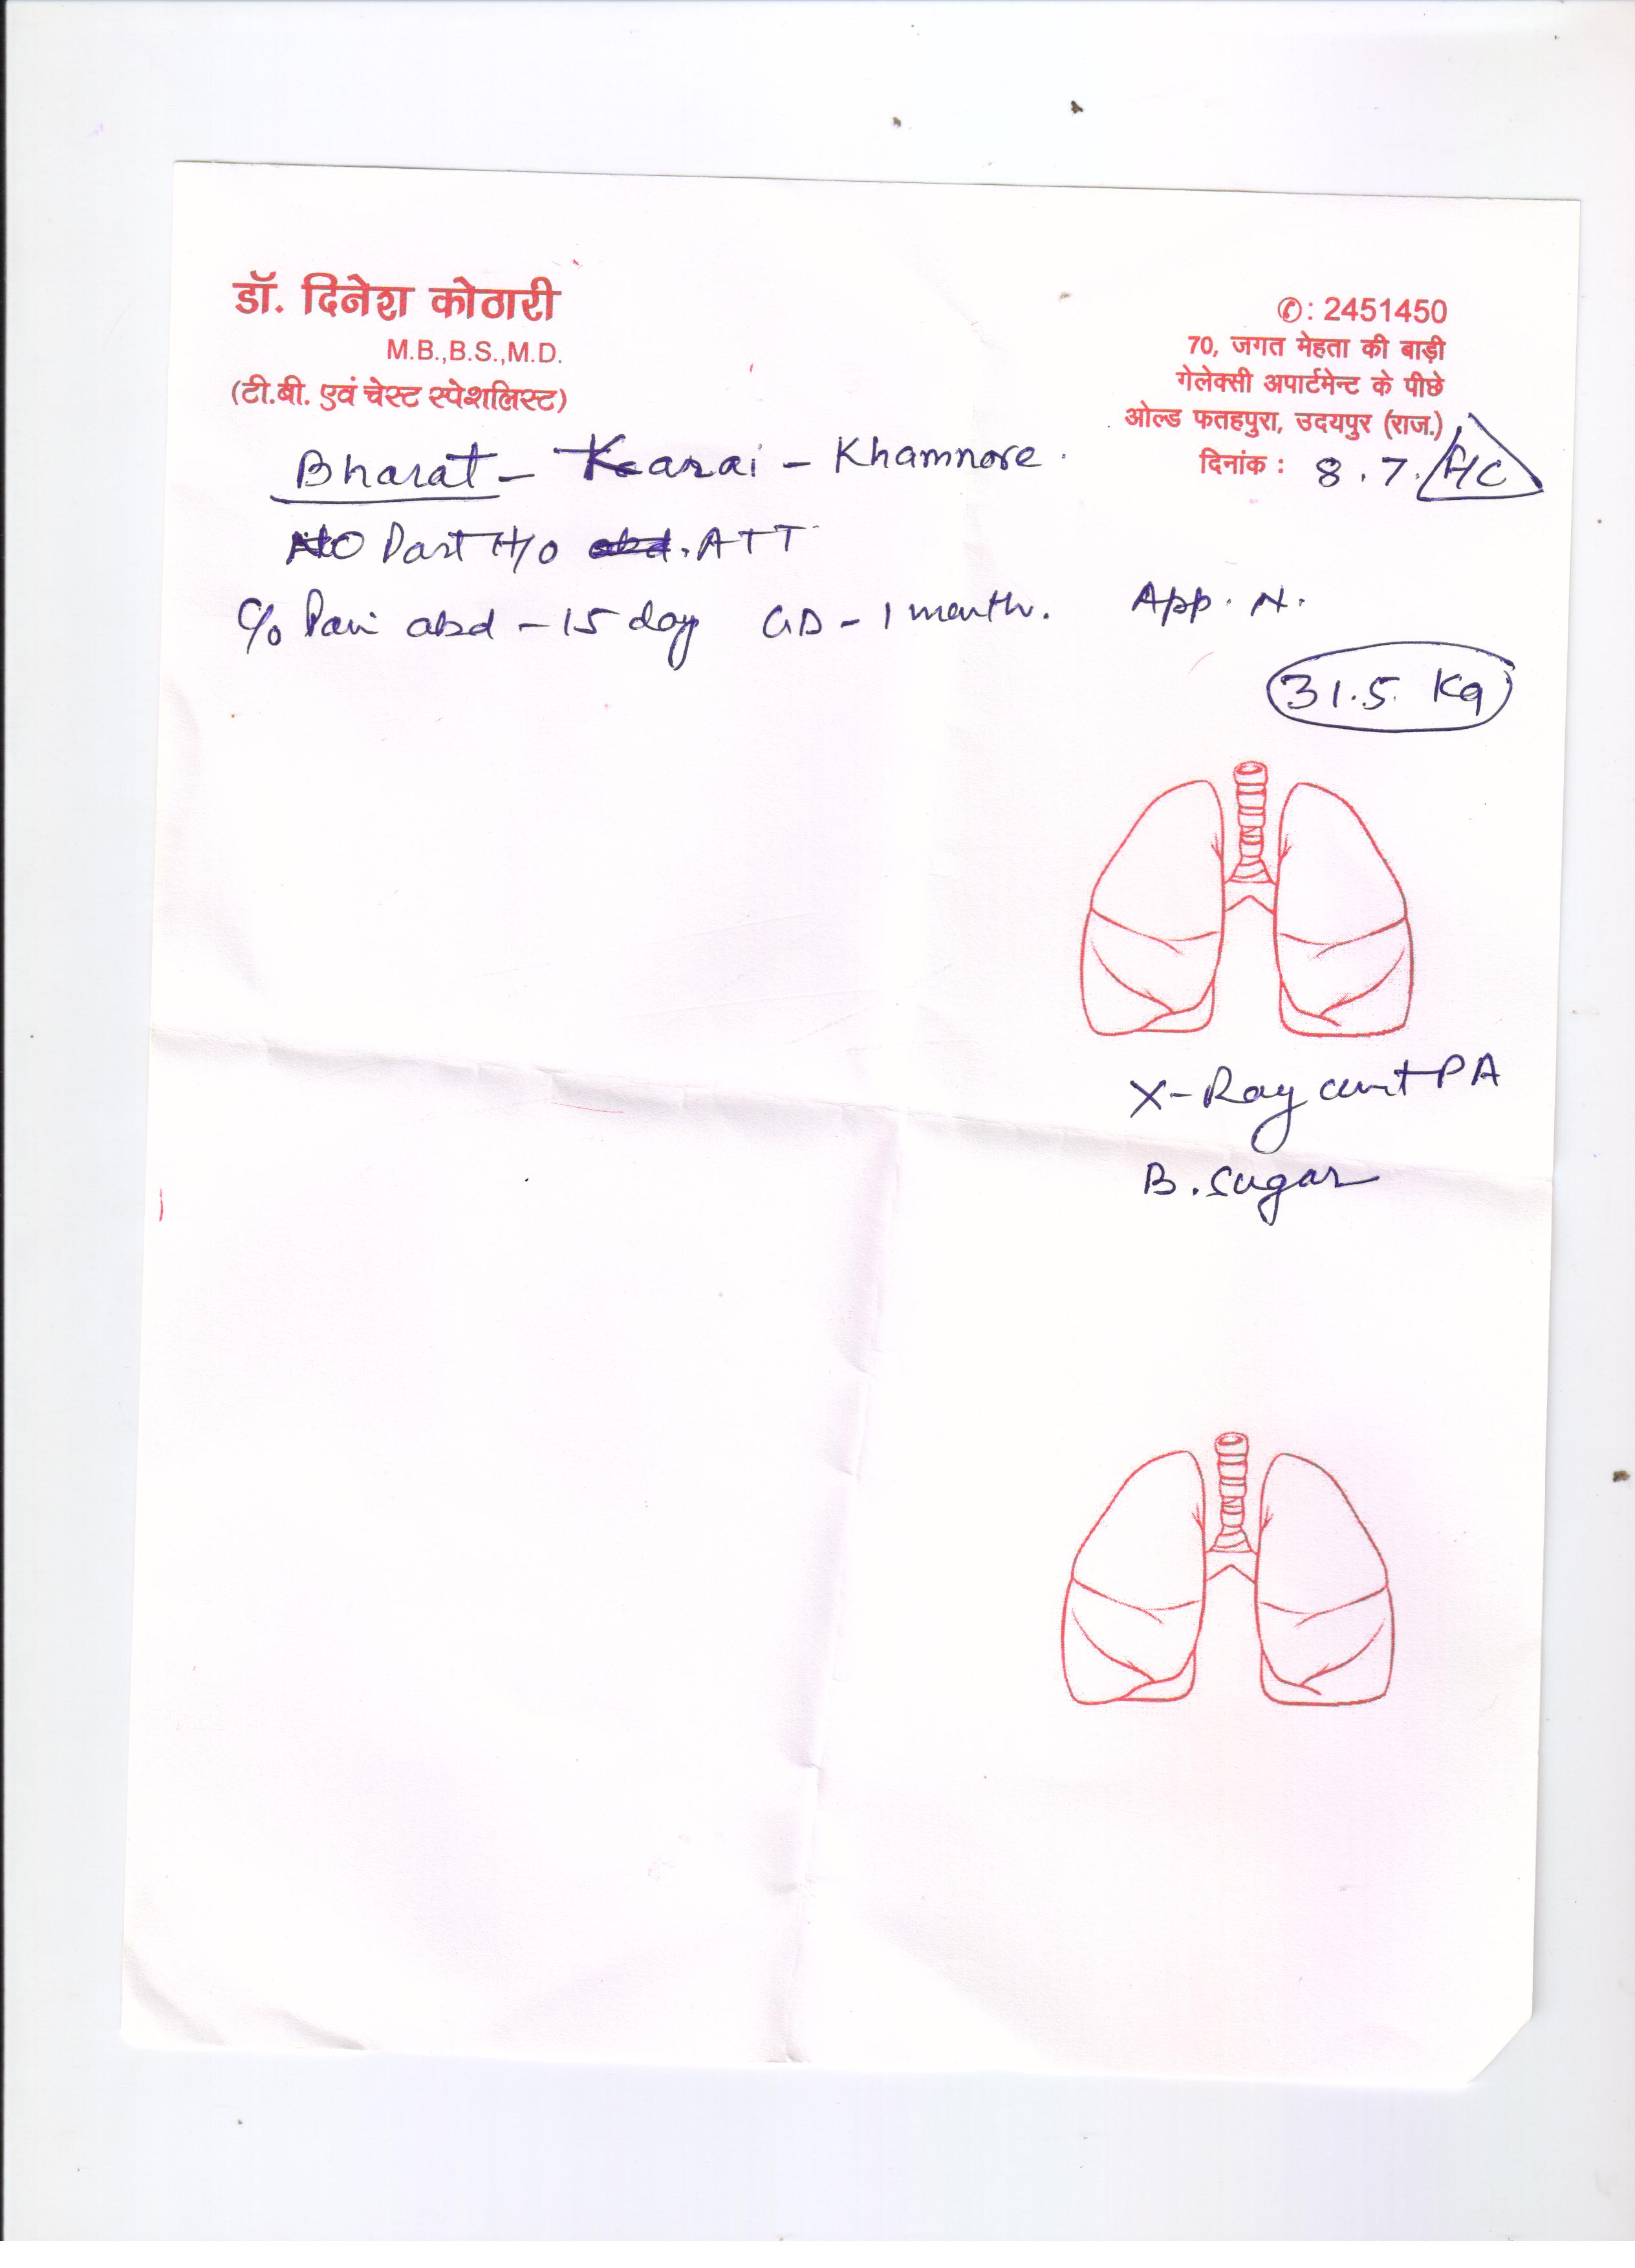 डॉ. दिनेश कोठारी
M.B.,B.S.,M.D.
(टी.बी. एवं चेस्ट स्पेशलिस्ट)
✆: 2451450
70, जगत मेहता की बाड़ी
गेलेक्सी अपार्टमेन्ट के पीछे
ओल्ड फतहपुरा, उदयपुर (राज.)
दिनांक : 8.7.
Bharat - - Khamnore.
NO Past H/o ATT
C/o Pain abd - 15 day GD - 1 month. App. N.
31.5 Kg
X-Ray PA
B. Sugar